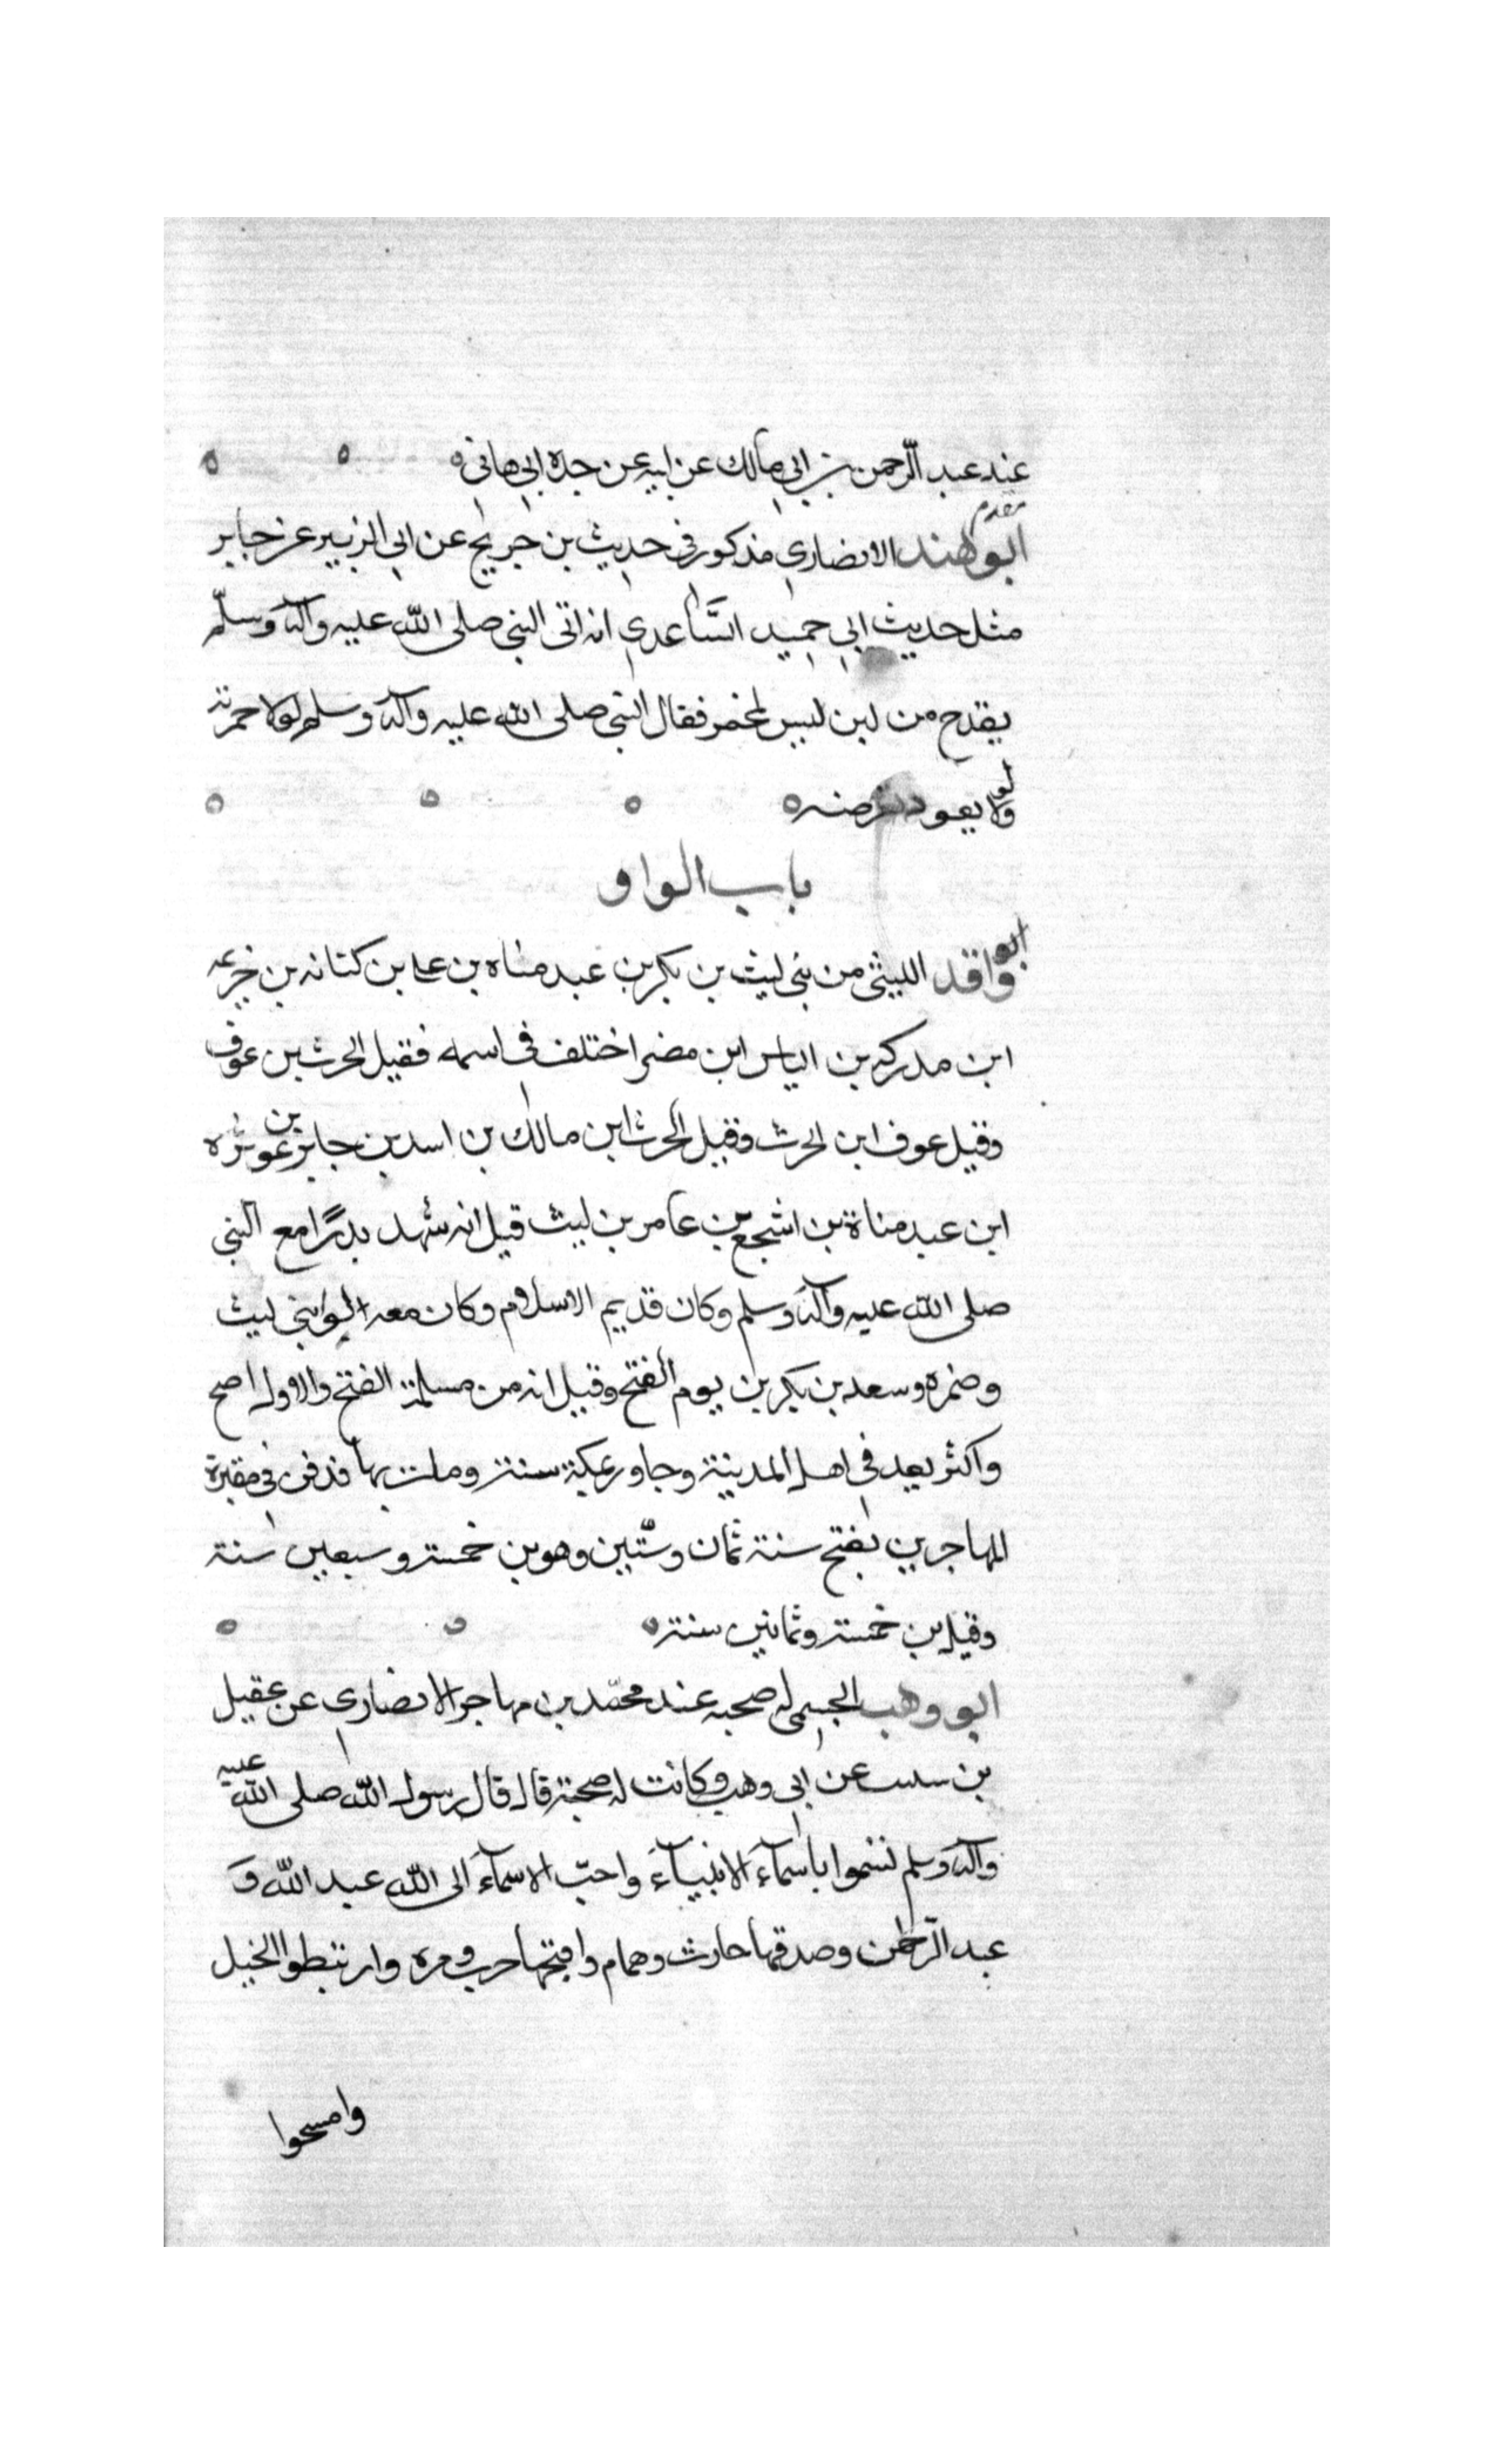 عند عبد الرّحمن بن ابي مالك عن ابيه عن جده ابي هاني
مقدم
ابو هند الانصاري مذكور في حديث بن جريج عن ابي الزبير عن جابر
مثل حديث ابي حميد السّاعدي انه اتى النبي صلى الله عليه وآله وسلّم
بقدح من لبن ليس لمخمر فقال النبي صلى الله عليه وآله وسلم لولا خمرته
ولو لا بعود
باب الواو
ابو واقد الليثي من بني ليث بن بكر بن عبد مناه بن علي بن كنانه بن خزيمه
ابن مدركه بن الياس ابن مضر اختلف في اسمه فقيل الحرث بن عوف
وقيل عوف ابن الحرث وقيل الحرث ابن مالك بن اسد بن جابر بن عوثره
ابن عبد مناة بن اشجع بن عامر بن ليث قيل انه شهد بدرًا مع النبي
صلى الله عليه وآله وسلم وكان قديم الاسلام وكان معه لواء بني ليث
وضمره وسعد بن بكر بن يوم الفتح وقيل انه من مسلمة الفتح والاول اصح
واكثر يعد في اهل المدينة وجاور بمكة سنة ومات بها فدفن في مقبرة
المهاجرين بفتح سنة ثمان وستّين وهو بن خمسة وسبعين سنة
وقيل بن خمسة وثمانين سنة
ابو وهب الجسمي له صحبه عند محمّد بن مهاجر الانصاري عن عقيل
بن عن ابي وهب وكانت له صحبة قال قال رسول الله صلى الله عليه
وآله وسلم تسموا باسمآء الانبيآء واحبّ الاسمآء الى الله عبد الله و
عبد الرّحمن وصدقها حارث وهمام واقبحها حرب ومره وارتبطوا الخيل
وامسحوا